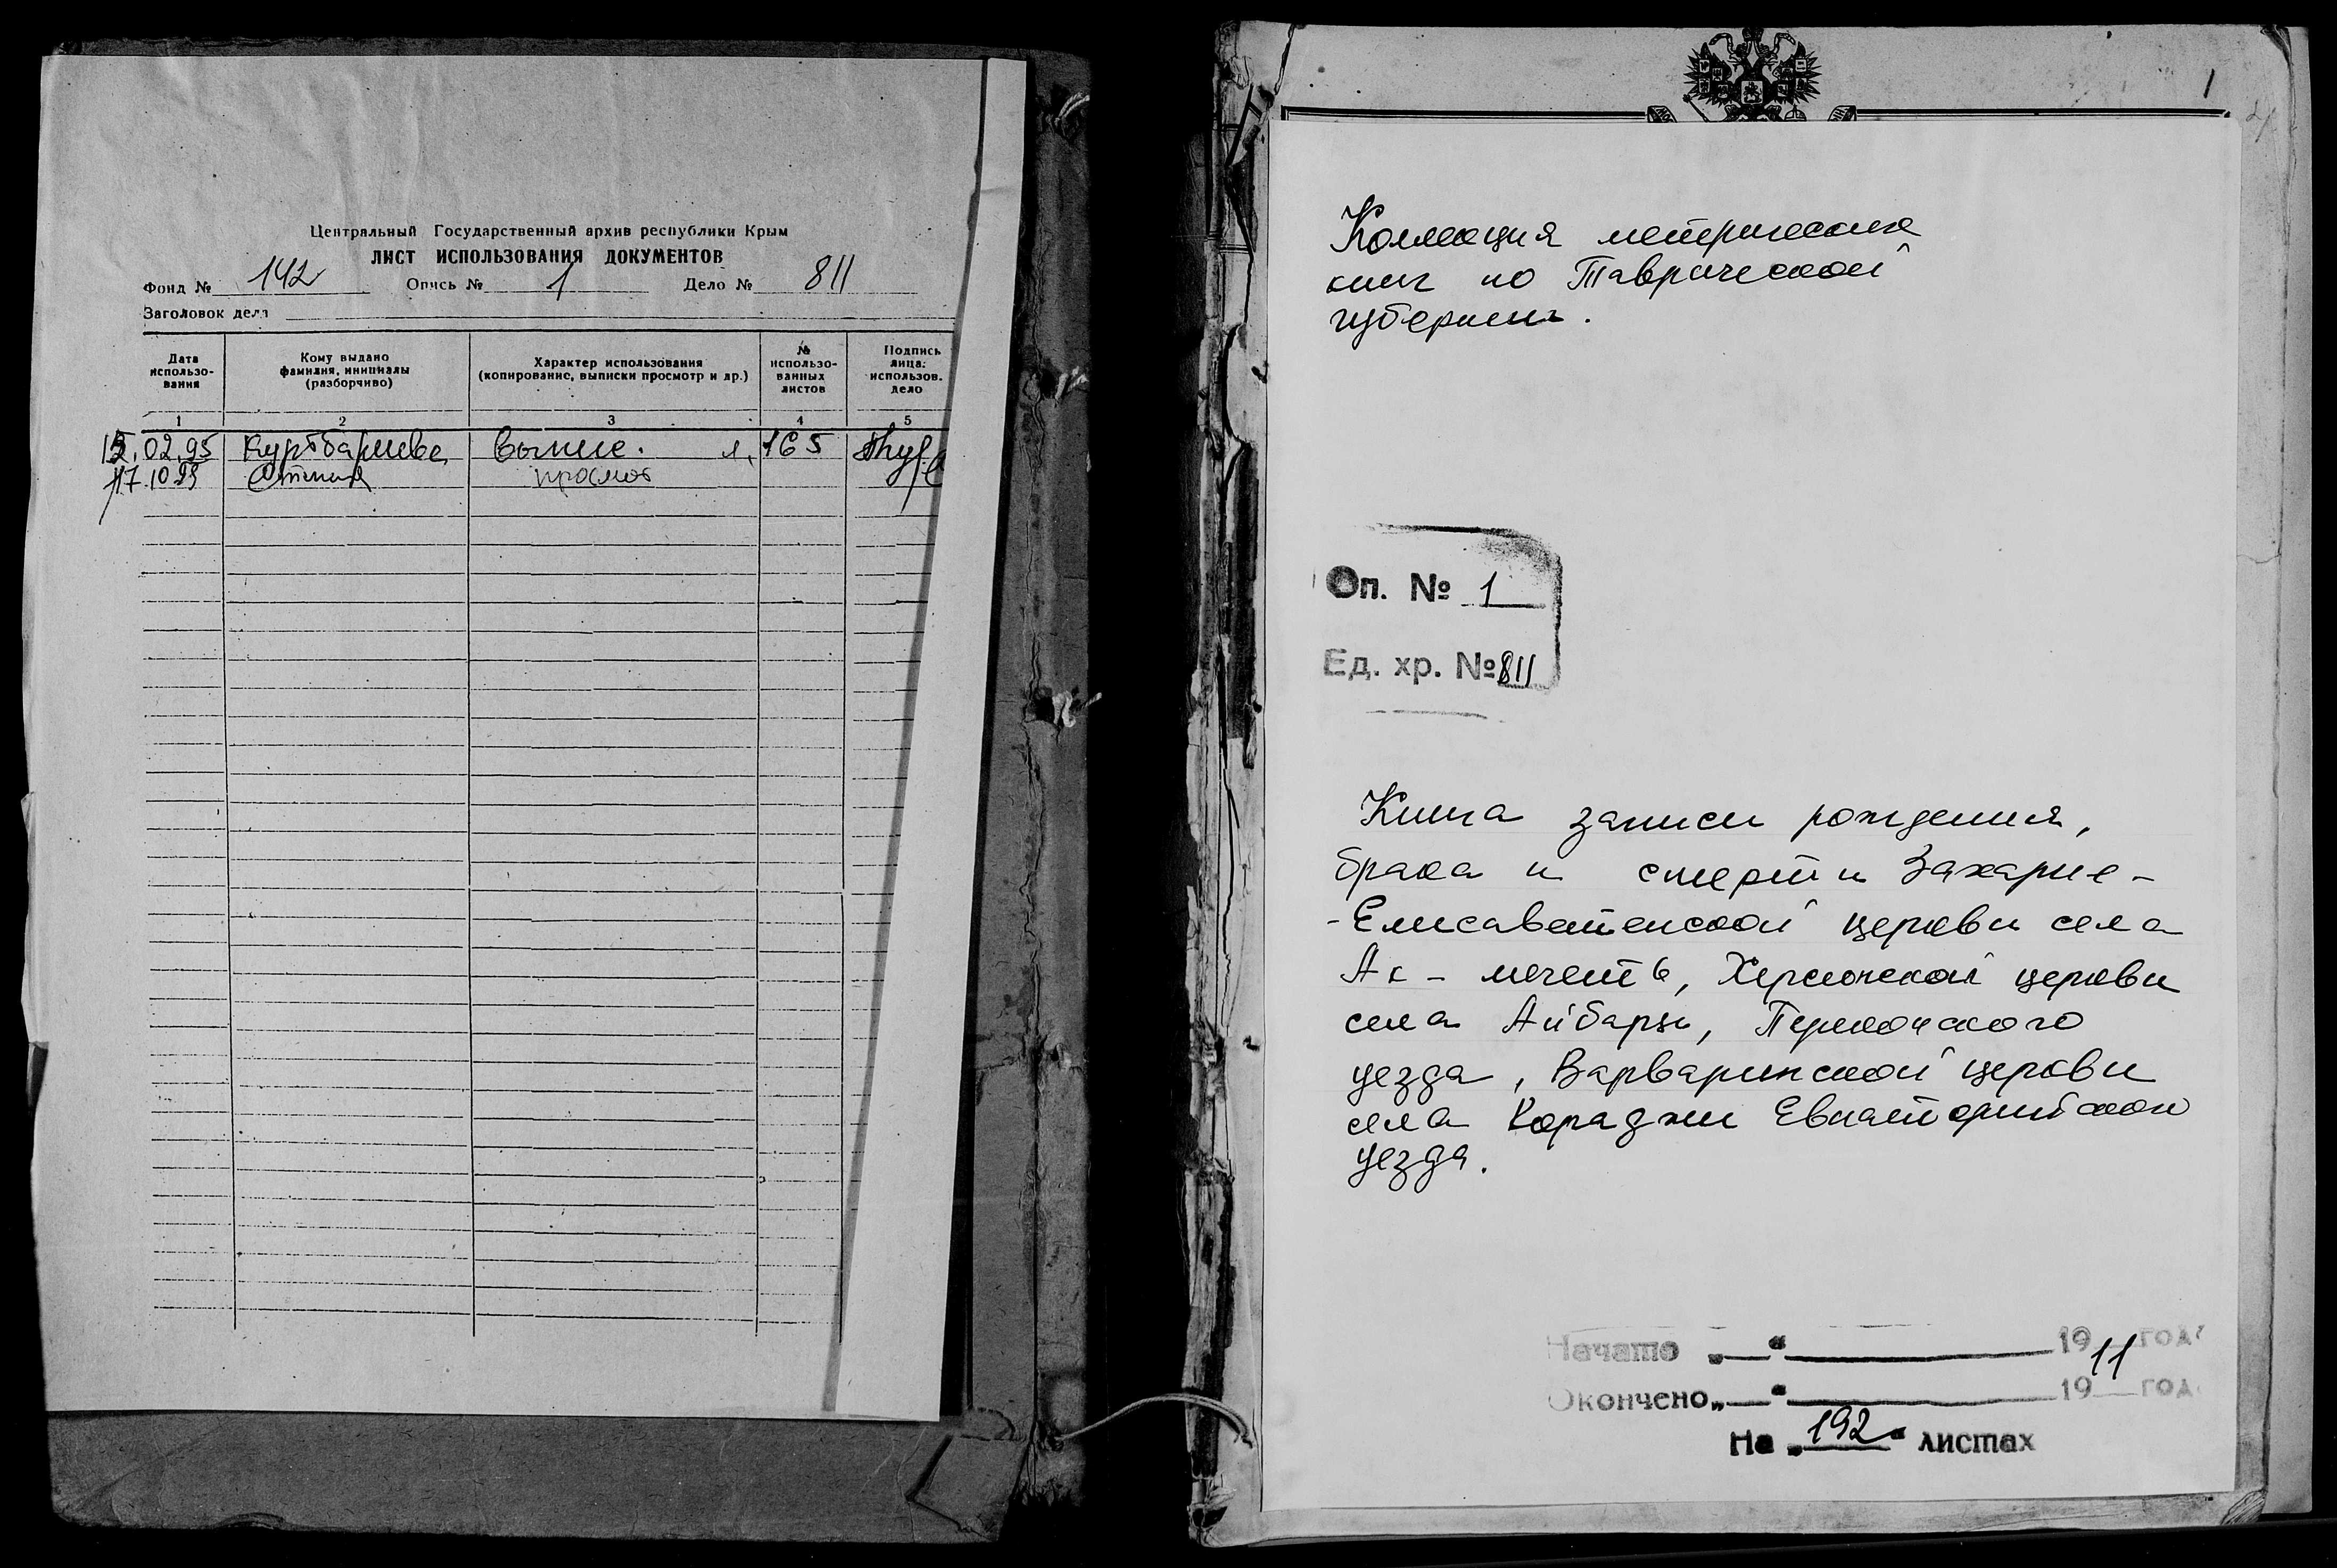 Центральный Государственный архив республики Крым
ЛИСТ ИСПОЛЬЗОВАНИЯ ДОКУМЕНТОВ
Фонд № 142 Опись № 1 Дело № 811
Заголовок дела
Дата использо-вания
Кому выдано фамилия, инициалы (разборчиво)
Характер использования (копирование, выписки просмотр и др.)
№ использо-ванных листов
Подпись лица: использов. дело
1 2 3 4 5
02.95 л. 165
17.10 просмот
1
Коллекция метрических
книг по Таврической
губернии.
Оп. № 1
Ед. хр. № 811
Книга записи рождения,
брака и смерти Захарие-
-Елисаветенской церкви села
Ак-мечеть, Херсонской церкви
села Айбары, Перекопского
уезда, Варваринской церкви
села Караджи Евпаторийской
уезда.
Начато „ “ 1911 год
Окончено „ “ 19 год
На „192“ листах